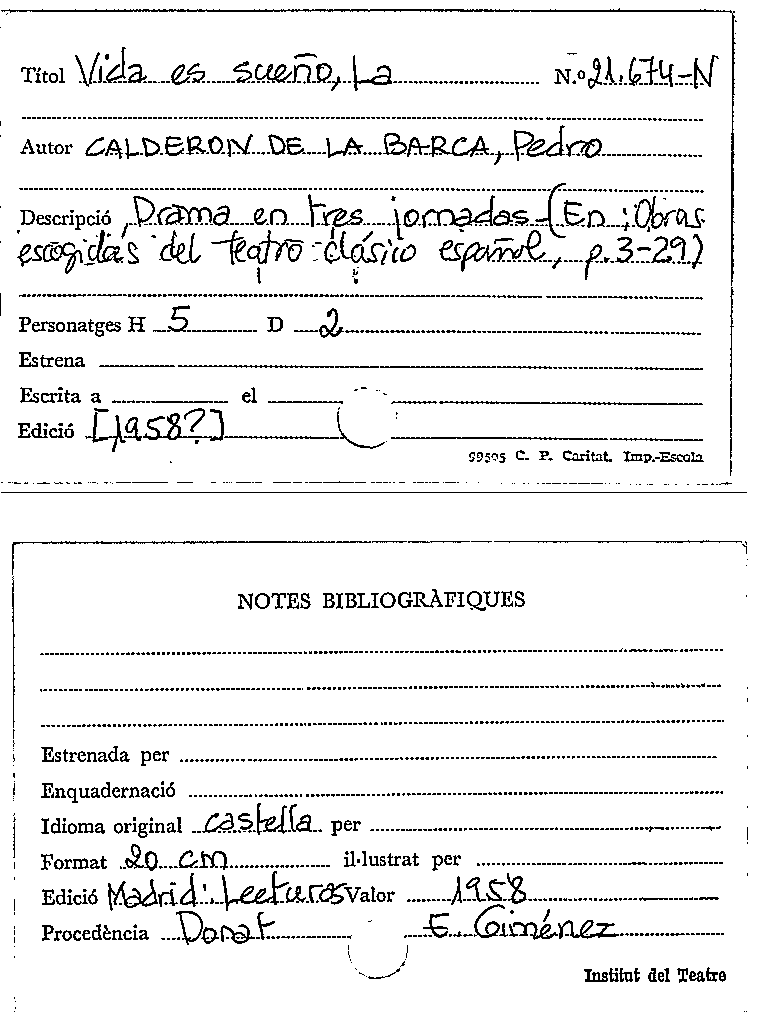 Títol Vida es sueño, La N.o 21.674-N
Autor CALDERON DE LA BARCA, Pedro
Descripció Drama en tres jornadas - (En : Obras
escogidas del teatro clásico español, p. 3-29)
Personatges H 5 D 2
Estrena
Escrita a el
Edició [1958?]
99595 C. P. Caritat. Imp.-Escola
NOTES BIBLIOGRÀFIQUES
Estrenada per
Enquadernació
Idioma original castella per
Format 20 cm il·lustrat per
Edició Madrid: Lecturas Valor 1958
Procedència Donat E. Giménez
Institut del Teatre